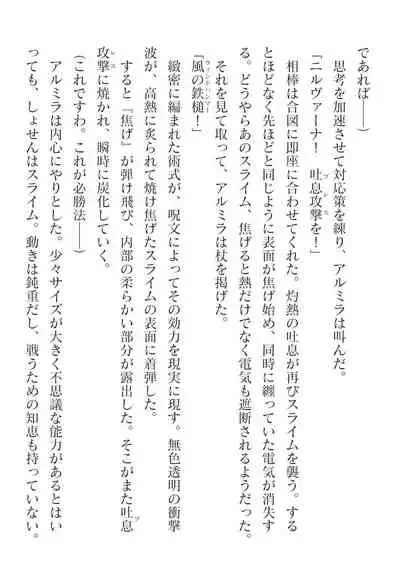 であれば――）
思考を加速させて対応策を練り、アルミラは叫んだ。
「ニルヴァーナ！　吐息攻撃を！」
相棒は合図に即座に合わせてくれた。灼熱の吐息が再びスライムを襲う。する
とほどなく先ほどと同じように表面が焦げ始め、同時に纏っていた電気が消失す
る。どうやらあのスライム、焦げると熱だけでなく電気も遮断されるようだった。
それを見て取って、アルミラは杖を掲げた。
「風の鉄槌！」
緻密に編まれた術式が、呪文によってその効力を現実に現す。無色透明の衝撃
波が、高熱に炙られて焼け焦げたスライムの表面に着弾した。
すると『焦げ』が弾け飛び、内部の柔らかい部分が露出した。そこがまた吐息
攻撃に焼かれ、瞬時に炭化していく。
（これですわ。これが必勝法――）
アルミラは内心にやりとした。少々サイズが大きく不思議な能力があるとはい
っても、しょせんはスライム。動きは鈍重だし、戦うための知恵も持っていない。